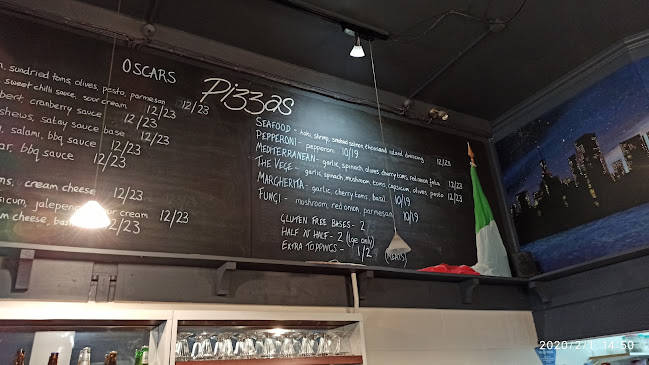 OSCARS
Pizzas
sundried toms, olives, pesto, parmesan 12/23
sweet chilli sauce, sour cream 12/23
cranberry sauce 12/23
satay sauce base 12/23
salami, bbq sauce 12/23
bbq sauce 12/23
cream cheese 12/23
jalepeno, sour cream 12/23
cheese, 12/23
SEAFOOD - hoki, shrimp, smoked salmon, thousand island dressing 12/23
PEPPERONI - pepperoni 10/19
MEDITERRANEAN - garlic, spinach, olives, cherry toms, red onion, feta 12/23
THE VEGE - garlic, spinach, mushroom, toms, capsicum, olives, pesto 12/23
MARGHERITA - garlic, cherry toms, basil 10/19
FUNGI - mushroom, red onion, parmesan 10/19
GLUTEN FREE BASES - 2
HALF N' HALF - 2 (Lge only)
EXTRA TOPPINGS - 1/2 (MEATS)
2020/2/1 14:50